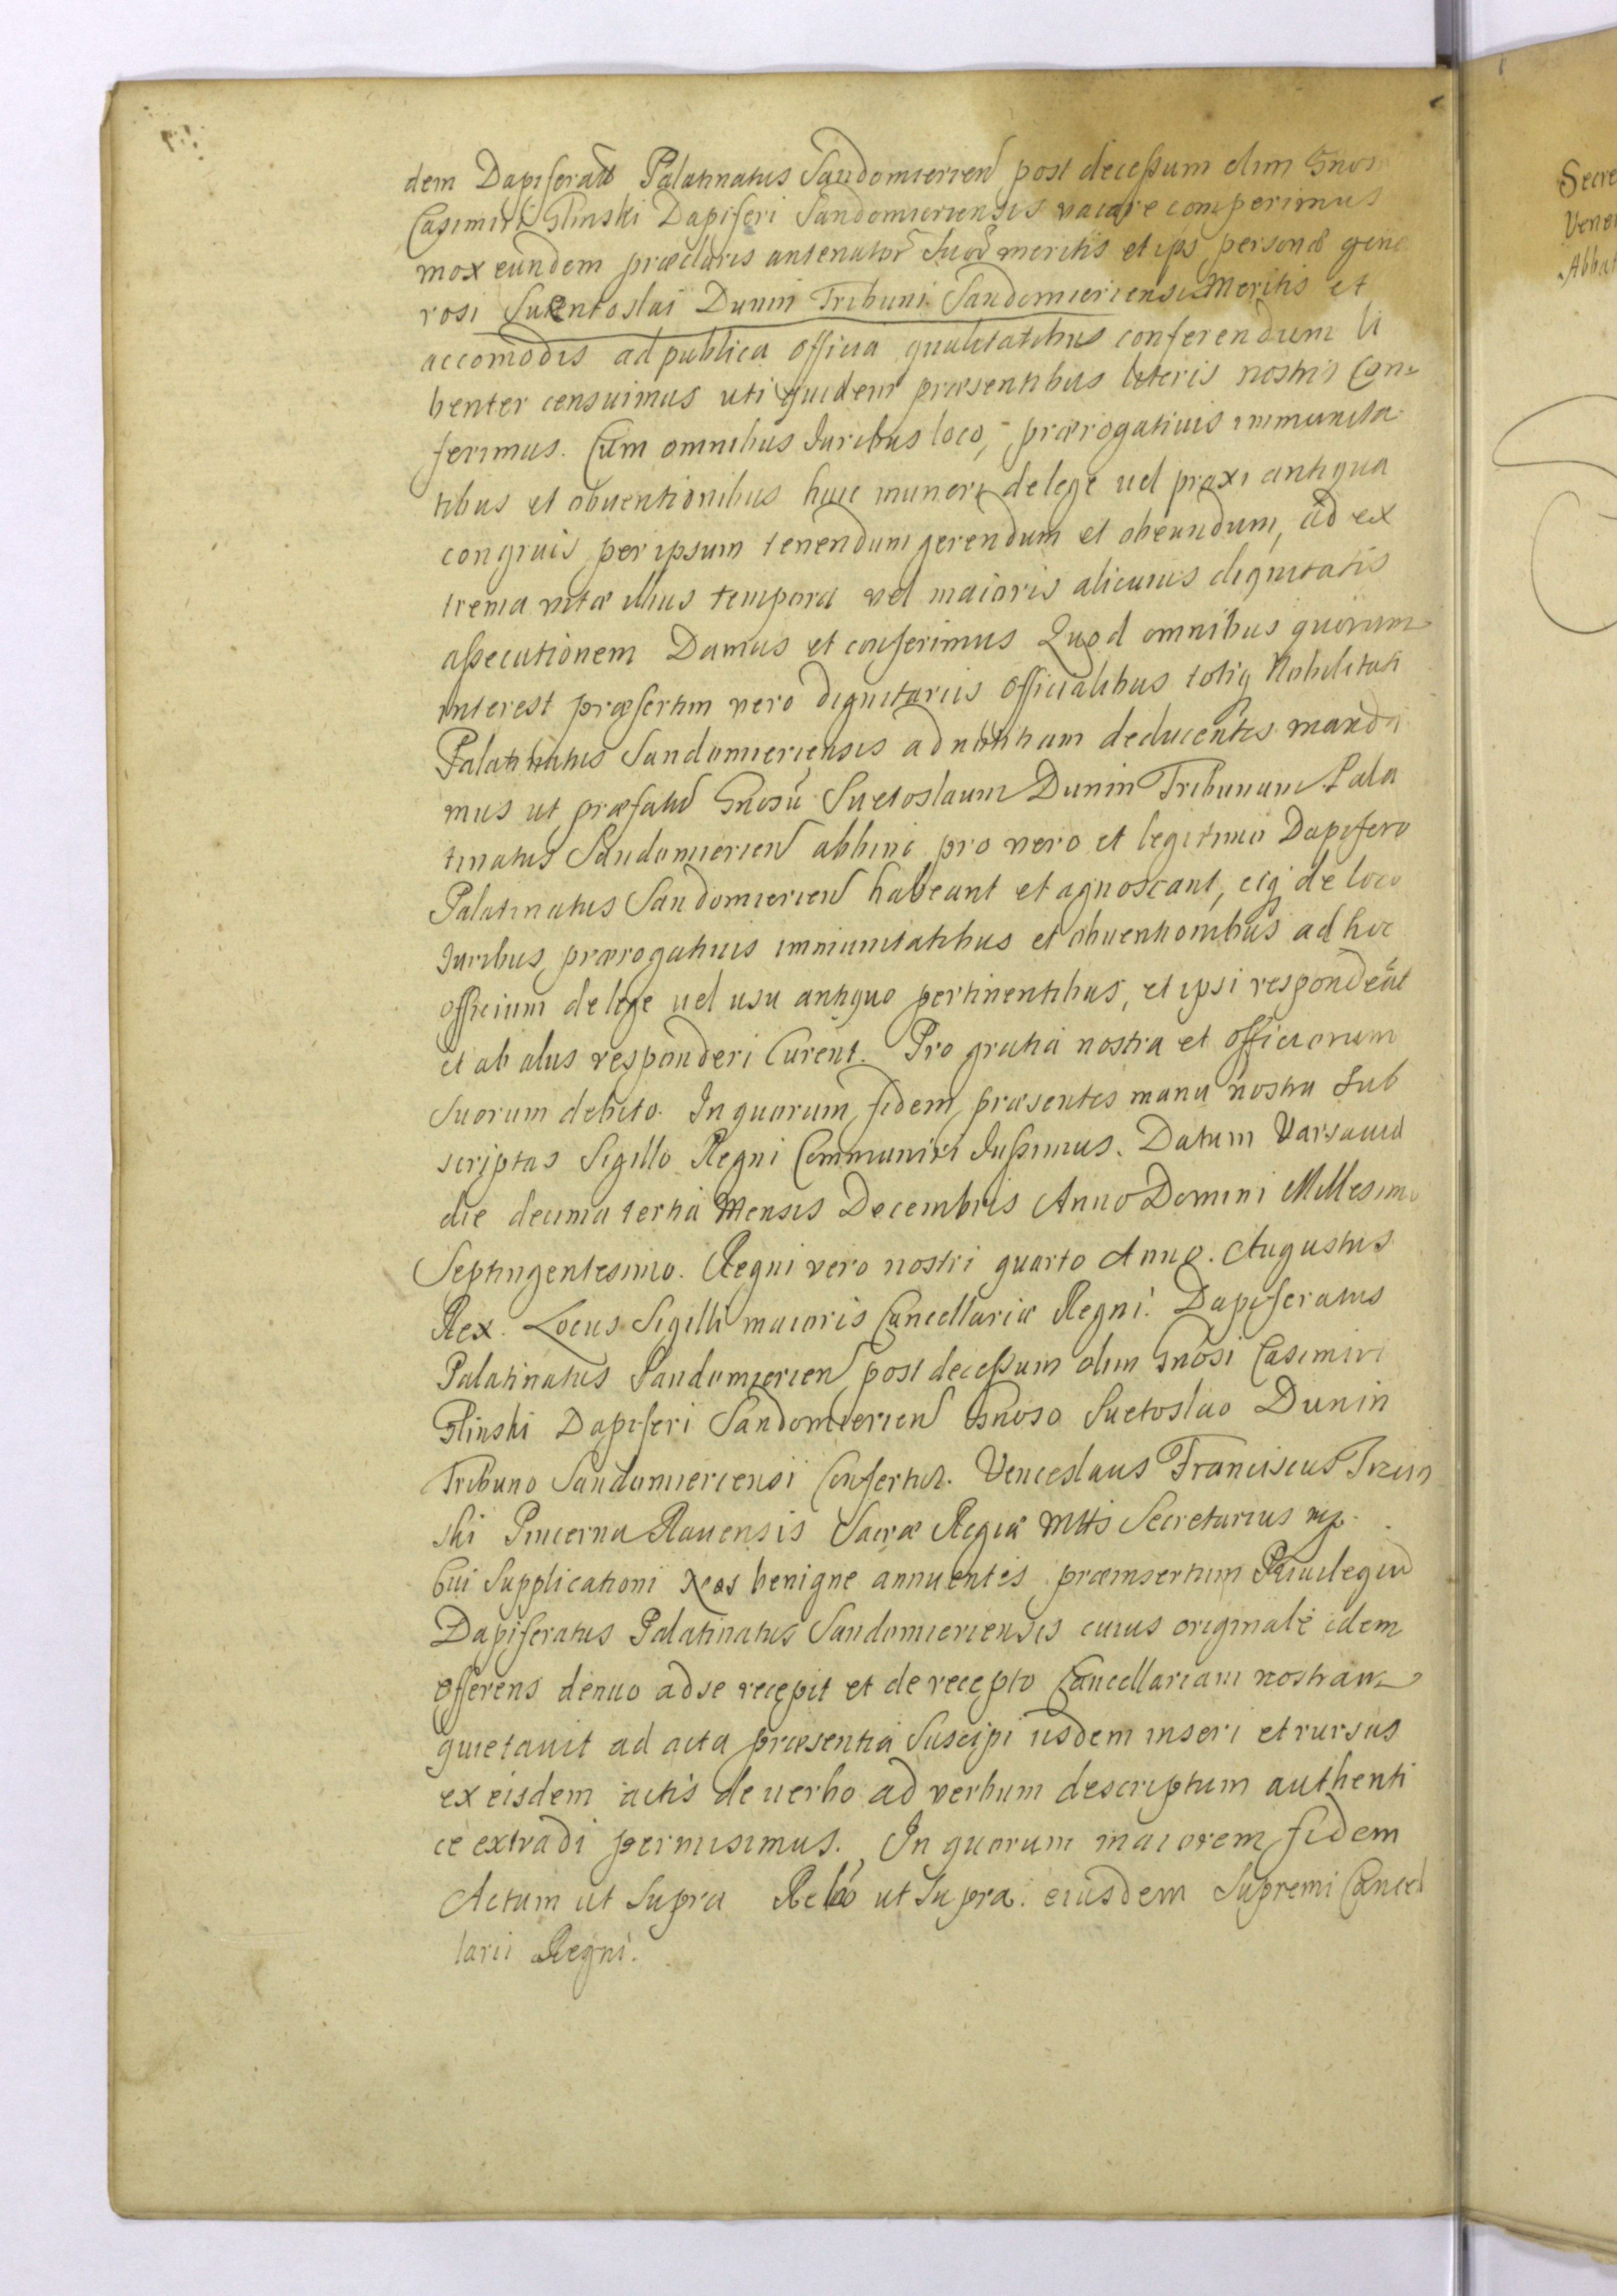 dem Dapiferatū Palatinatus Sandomierien post decessum olim Gnosi
Casimiri Glinski Dapiferi Sandomieriensis vacare comperimus
mox eundem præclaris antenator Suor meritis et ips personæ gene
rosi Suentoslai Dunin Tribuni Sandomieriensis Meritis et
accomodis ad publica officia qualitatibus conferendum li
benter censuimus uti quidem præsentibus literis nostris Con=
ferimus. Cum omnibus Juribus loco, prærogativis immunita
tibus et obventionibus huic muneri de lege vel praxi antiqua
congruis per ipsum tenendum gerendum et obeundum, ad ex
trema vitæ illius tempora vel maioris alicuius dignitatis
assecutionem Damus et conferimus Quod omnibus quorum
interest præsertim vero dignitariis officialibus totiq Nobilitati
Palatinatus Sandomieriensis ad notitiam deducentes manda
mus ut præfatū Gnosū Suetoslaum Dunin Tribunum Pala
tinatus Sandomierien abhinc pro vero et legitimo Dapifero
Palatinatus Sandomierien habeant et agnoscant, eiq de loco
Juribus prærogativis immunitatibus et obventionibus ad hoc
officium de lege vel usu antiquo pertinentibus, et ipsi respondeāt
et ab aliis responderi Curent. Pro gratia nostra et officiorum
Suorum debito. In quorum fidem præsentes manu nostra Sub
scriptas Sigillo Regni Communiri Jussimus. Datum Varsauiæ
die decima tertia Mensis Decembris Anno Domini Millesimo
Septingentesimo. Regni vero nostri quarto Anno. Augustus
Rex. Locus Sigilli maioris Cancellariæ Regni. Dapiferatus
Palatinatus Sandomierien post decessum olim Gnōsi Casimiri
Glinski Dapiferi Sandomierien Gnoso Suetoslao Dunin
Tribuno Sandomieriensi Confertur. Venceslaus Franciscus Trzin
ski Pincerna Rauensis Sacræ Regiæ Mttis Secretarius mp.
Cui Supplicationi Nos benigne annuentes præinsertum Priuilegiū
Dapiferatus Palatinatus Sandomieriensis cuius originale idem
offerens denuo ad se recepit et de recepto Cancellariam nostram
quietauit ad acta præsentia Suscipi iisdem inseri et rursus
ex eisdem actis de uerbo ad verbum descriptum authenti
ce extradi permisimus. In quorum maiorem fidem
Actum ut Supra Relō ut Supra. eiusdem Supremi Cancel
larii Regni.
Secre
Vener
Abbat